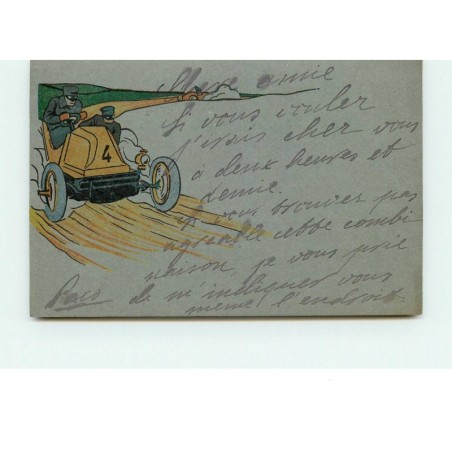 Chère amie
Si vous voulez
j'irais chez vous
à deux heures et
demie.
Si vous trouvez pas
agréable cette combi
naison, je vous prie
de m'indiquer vous
même l'endroit.
Paco
4